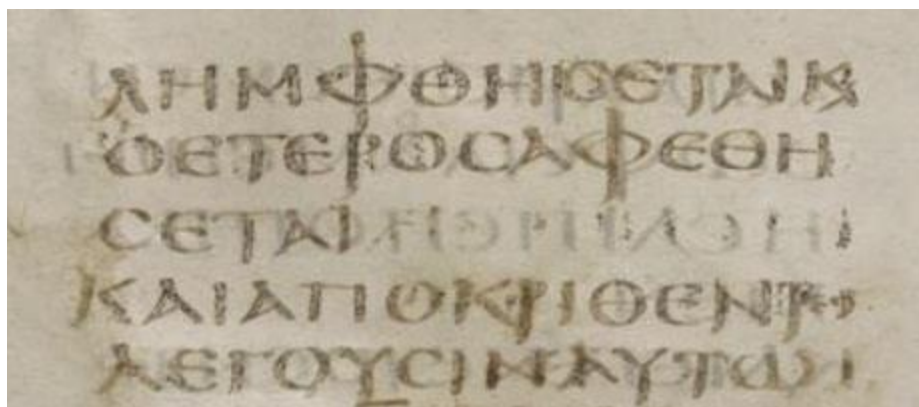 ΛΗΜΦΘΗϹΕΤΑΙΚ
ΟΕΤΕΡΟϹΑΦΕΘΗ
ϹΕΤΑΙ
ΚΑΙΑΠΟΚΡΙΘΕΝΤΕϹ
ΛΕΓΟΥϹΙΝΑΥΤΩ